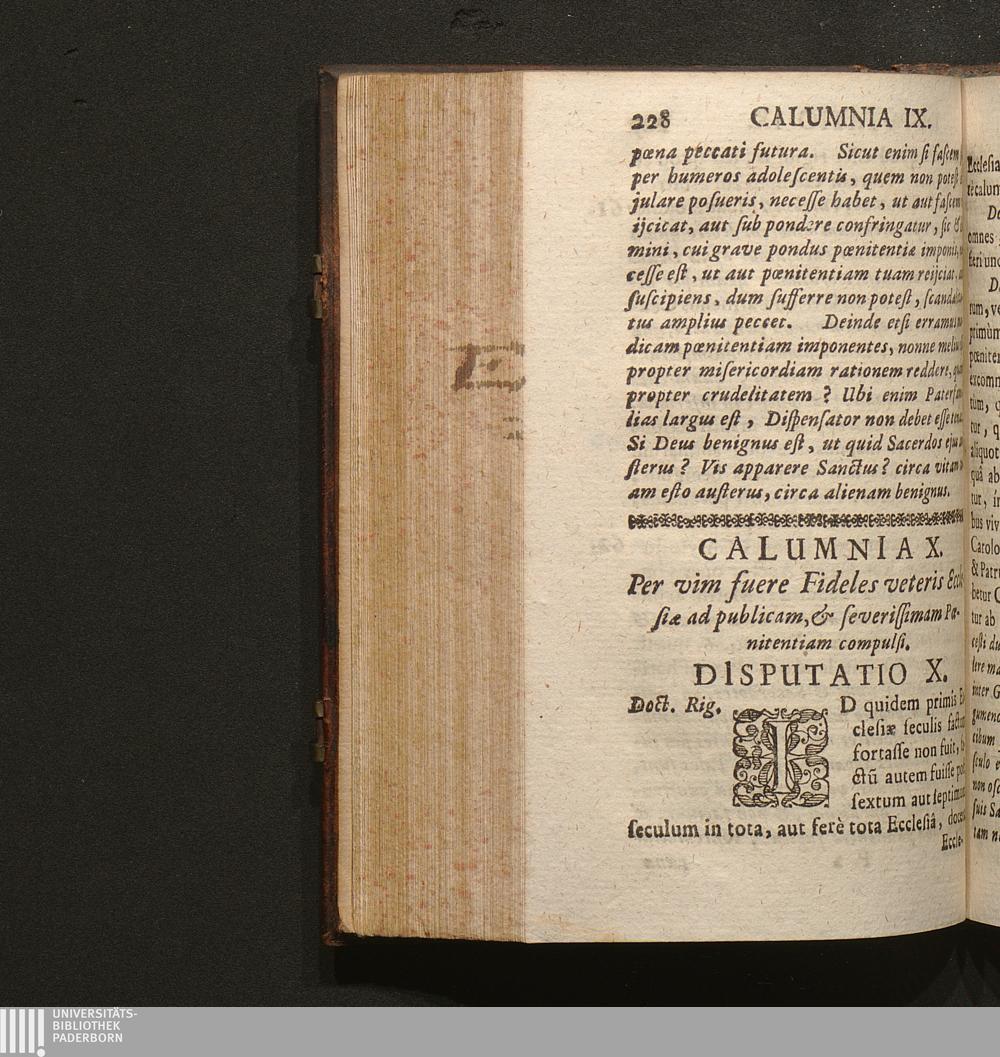 228 CALUMNIA IX.
pœna peccati futura. Sicut enim ſi faſcem
per humeros adoleſcentis, quem non poteſt
julare poſueris, neceſſe habet, ut aut faſcem
iijcicat, aut ſub pondere confringatur, ſic &
mini, cui grave pondus pœnitentiæ imponis,
ceſſe eſt, ut aut pœnitentiam tuam reijciat,
ſuſcipiens, dum ſufferre non poteſt, ſcandali
tus amplius peccet. Deinde etſi erramus
dicam pœnitentiam imponentes, nonne melius
propter miſericordiam rationem reddere,
propter crudelitatem? Ubi enim Pater
lias largus eſt, Diſpenſator non debet eſſe
Si Deus benignus eſt, ut quid Sacerdos ejus
ſterus? Vis apparere Sanctus? circa vitam
am eſto auſterus, circa alienam benignus.
CALUMNIA X.
Per vim fuere Fideles veteris Eccle
ſiæ ad publicam, & ſeveriſſimam Pœ-
nitentiam compulſi.
DISPUTATIO X.
Doct. Rig. ID quidem primis
cleſiæ ſeculis factum
fortaſſe non fuit,
ctũ autem fuiſſe
ſextum aut ſeptimum
ſeculum in tota, aut ferè tota Eccleſiâ,
Eccle-
Eccleſia
omnes
primùm
excomm
tur, q
aliquot
quâ ab
bus viv
Carolo
& Patri
betur C
tur ab
inter G
ſculo e
UNIVERSITÄTS-
BIBLIOTHEK
PADERBORN